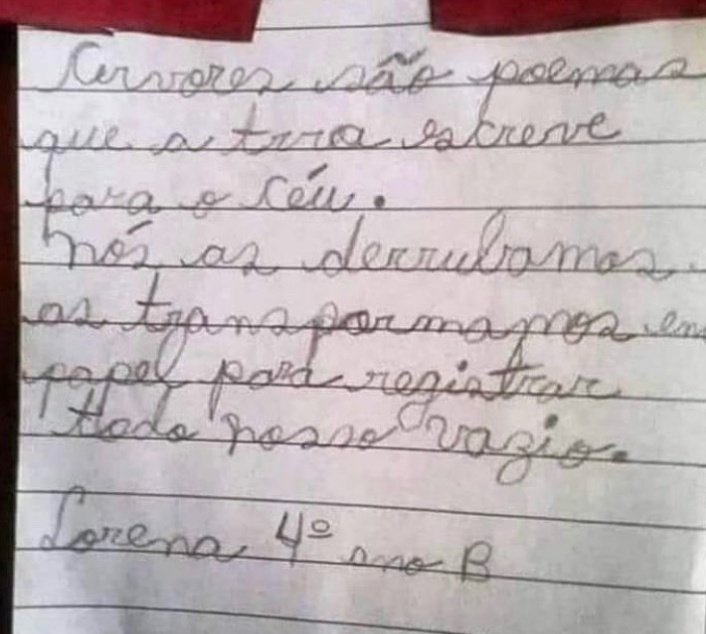 Arvores são poemas
que a terra escreve
para o céu.
nós as derrubamos
as transpormamos em
papel para registrar
todo nosso vazio.
Lorena 4º ano B